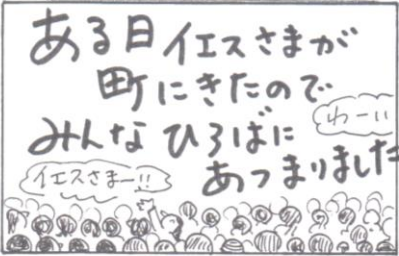 ある日イエスさまが
町にきたので
みんなひろばに
あつまりました
わーい
イエスさまー!!